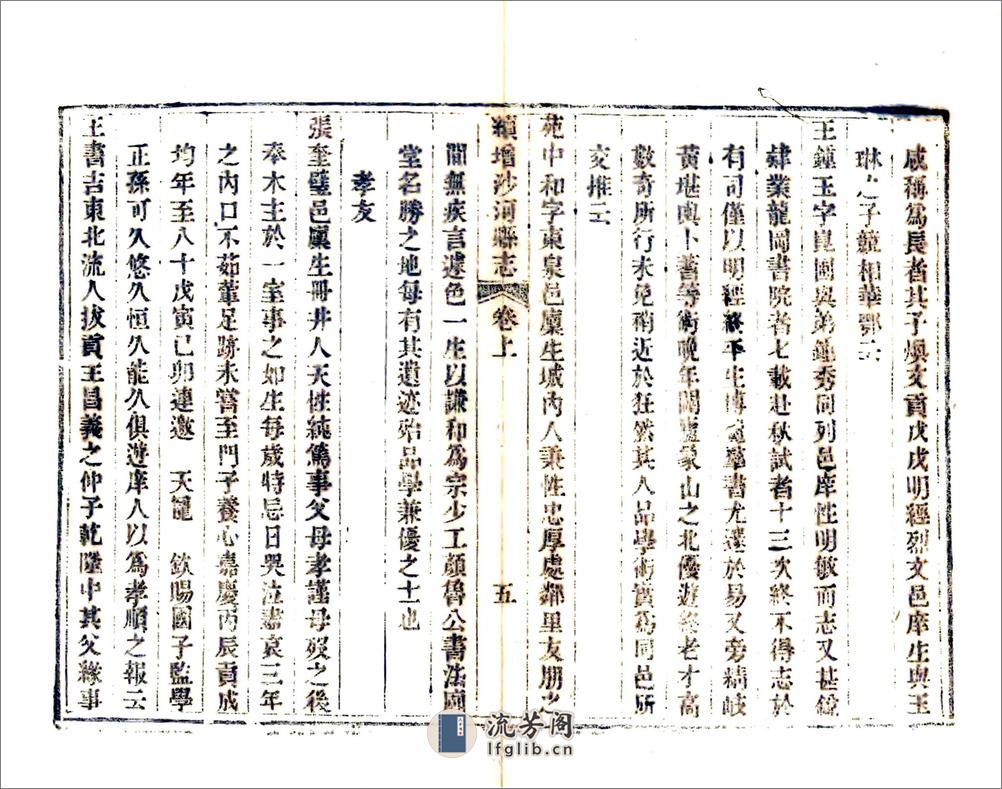 咸稱爲長者其子煥文貢戊戌明經烈文邑庠生與王
琳之子競相華鄂云
王鐘玉字崑圃與弟鍾秀同列邑庠性明敏而志又甚銳
肄業龍岡書院者七載赴秋試者十三次終不得志於
有司僅以明經終平生博覽羣書尤邃於易又旁精岐
黃堪輿卜蓍等術晚年闢廬象山之北優遊終老才高
數奇所行未免稍近於狂然其人品學術實爲同邑所
交推云
苑中和字東泉邑廩生城內人秉性忠厚處鄰里友朋之
續增沙河縣志 卷上 五
間無疾言遽色一生以謙和爲宗少工顏魯公書法廟
堂名勝之地每有其遺迹殆品學兼優之士也
孝友
張奎璧邑廩生冊井人天性純篤事父母孝謹母歿之後
奉木主於一室事之如生每歲特忌日哭泣盡哀三年
之內口不茹葷足跡未嘗至門子養心嘉慶丙辰貢成
均年至八十戊寅己卯連邀 天寵 欽賜國子監學
正孫可久悠久恒久能久俱遊庠人以爲孝順之報云
王書吉東北流人拔貢王昌義之仲子乾隆中其父緣事
流芳阁
lfglib.cn